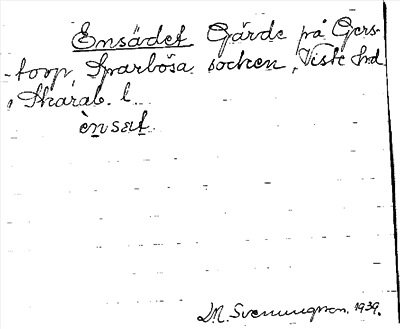 Ensädet Gärde på Gers-
torp, Sparlösa socken, Viste hd
, Skarab. l.
ènsæt
M. Svenungson. 1939.